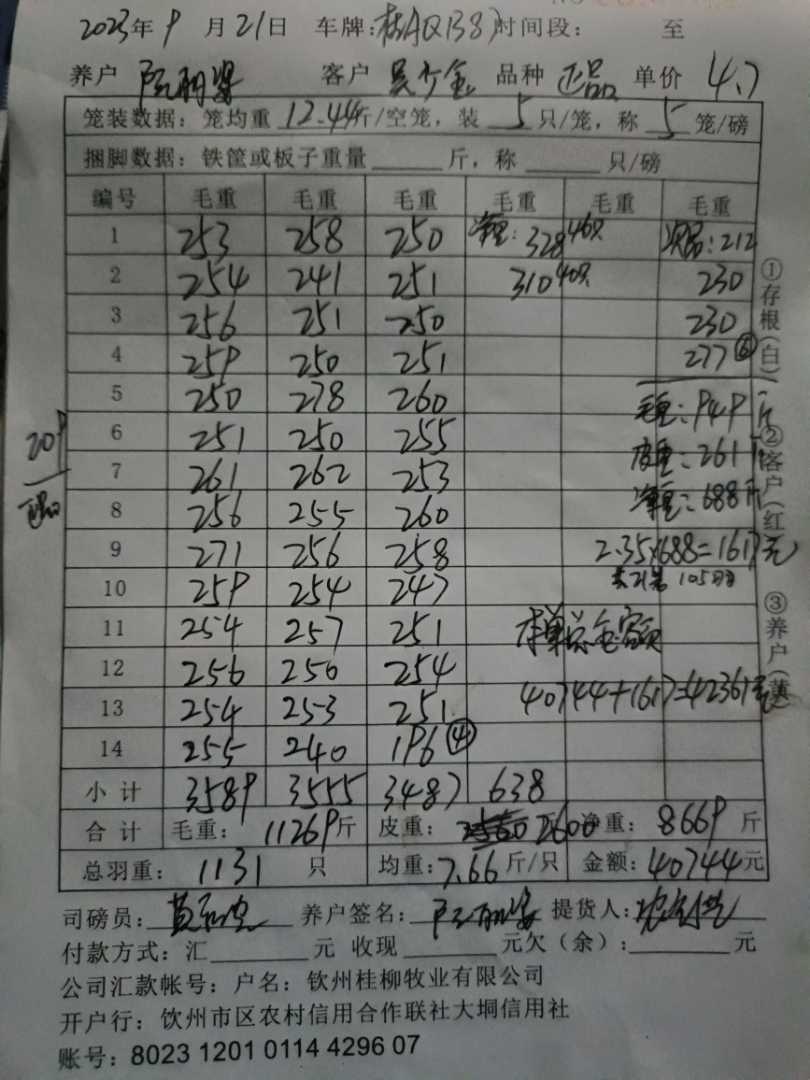 2023年 9 月 21日 车牌:桂AQB87 时间段: 至
养户 阮丽婆 客户 吴少金 品种 正品 单价 4.7
笼装数据: 笼均重 12.44斤/空笼, 装 5 只/笼, 称 5 笼/磅
捆脚数据: 铁筐或板子重量 斤, 称 只/磅
编号 毛重 毛重 毛重 毛重 毛重 毛重
1 253 258 250 净重: 328 46只 次品: 212
2 254 241 251 310 40只 230
3 256 251 250 230
4 259 250 251 277 ⑥
5 250 278 260 毛重: 949斤
6 251 250 255 皮重: 261斤
7 261 262 253 净重: 688斤
8 256 255 260
9 271 256 258 2.35×688=1617元
10 259 254 247 105只
11 254 257 251 本单总金额
12 256 250 254
13 254 253 251 40744+1617=42361元
14 255 240 196 ④
小计 3589 3555 3487 638
合计 毛重: 11269斤 皮重: 2600 净重: 8669 斤
总羽重: 1131 只 均重: 7.66 斤/只 金额: 40744元
司磅员: 养户签名: 提货人:
付款方式: 汇 元 收现 元欠(余): 元
公司汇款帐号: 户名: 钦州桂柳牧业有限公司
开户行: 钦州市区农村信用合作联社大垌信用社
账号: 8023 1201 0114 4296 07
①存根(白) ②客户(红) ③养户(黄)
209